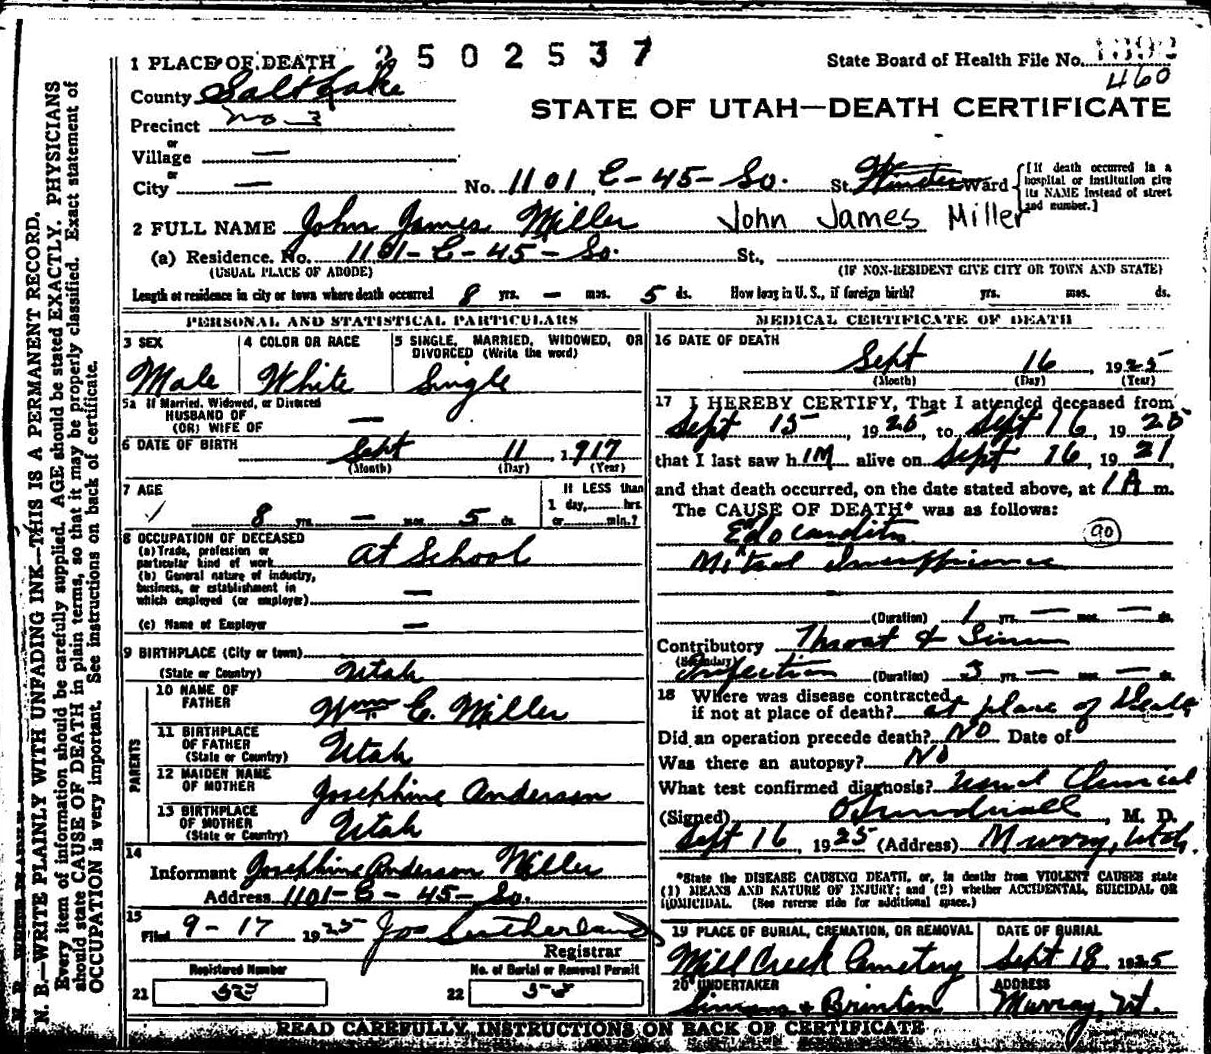 1 PLACE OF DEATH 2502537
State Board of Health File No.
460
County Salt Lake
STATE OF UTAH—DEATH CERTIFICATE
Precinct No 3
or
Village —
or
City — No. 1101 E-45-So. St. Ward
[If death occurred in a hospital or institution give its NAME instead of street and number.]
2 FULL NAME John James Miller John James Miller
(a) Residence. No. 1101-E-45-So. St.,
(USUAL PLACE OF ABODE) (IF NON-RESIDENT GIVE CITY OR TOWN AND STATE)
Length of residence in city or town where death occurred 8 yrs. — mos. 5 ds. How long in U. S., if foreign birth? yrs. mos. ds.
PERSONAL AND STATISTICAL PARTICULARS
3 SEX
Male
4 COLOR OR RACE
White
5 SINGLE, MARRIED, WIDOWED, OR DIVORCED (Write the word)
Single
5a If Married, Widowed, or Divorced
HUSBAND OF
(OR) WIFE OF —
6 DATE OF BIRTH Sept 11, 1917
(Month) (Day) (Year)
7 AGE
8 yrs. — mos. 5 ds.
If LESS than
1 day, hrs.
or min.?
8 OCCUPATION OF DECEASED
(a) Trade, profession or
particular kind of work at School
(b) General nature of industry,
business, or establishment in
which employed (or employer) —
(c) Name of Employer —
9 BIRTHPLACE (City or town)
(State or Country) Utah
PARENTS
10 NAME OF
FATHER Wm E. Miller
11 BIRTHPLACE
OF FATHER
(State or Country) Utah
12 MAIDEN NAME
OF MOTHER Josephine Anderson
13 BIRTHPLACE
OF MOTHER
(State or Country) Utah
14
Informant Josephine Anderson Miller
Address 1101-E-45-So.
15
Filed 9-17 1925 Jos Sutherland
Registrar
Registered Number No. of Burial or Removal Permit
21
22
MEDICAL CERTIFICATE OF DEATH
16 DATE OF DEATH
Sept 16, 1925
(Month) (Day) (Year)
17 I HEREBY CERTIFY, That I attended deceased from
Sept 15, 1925, to Sept 16, 1925
that I last saw him alive on Sept 16, 1921
and that death occurred, on the date stated above, at 1 A m.
The CAUSE OF DEATH* was as follows:
90
Mitral
(Duration) 1 yrs. — mos. — ds.
Contributory Throat & Sinus
(Secondary) Infection (Duration) 3 yrs. — mos. — ds.
18 Where was disease contracted
if not at place of death? at place of Death
Did an operation precede death? No Date of
Was there an autopsy? No
What test confirmed diagnosis? Usual Clinical
(Signed) , M. D.
Sept 16, 1925 (Address) Murray, Utah.
*State the DISEASE CAUSING DEATH, or, in deaths from VIOLENT CAUSES state
(1) MEANS AND NATURE OF INJURY; and (2) whether ACCIDENTAL, SUICIDAL OR
HOMICIDAL. (See reverse side for additional space.)
19 PLACE OF BURIAL, CREMATION, OR REMOVAL
Mill Creek Cemetery
DATE OF BURIAL
Sept 18, 1925
20 UNDERTAKER
Simons & Brinton
ADDRESS
Murray, Ut.
READ CAREFULLY INSTRUCTIONS ON BACK OF CERTIFICATE
N. B.—WRITE PLAINLY WITH UNFADING INK—THIS IS A PERMANENT RECORD.
Every item of information should be carefully supplied. AGE should be stated EXACTLY. PHYSICIANS
should state CAUSE OF DEATH in plain terms, so that it may be properly classified. Exact statement of
OCCUPATION is very important. See instructions on back of certificate.